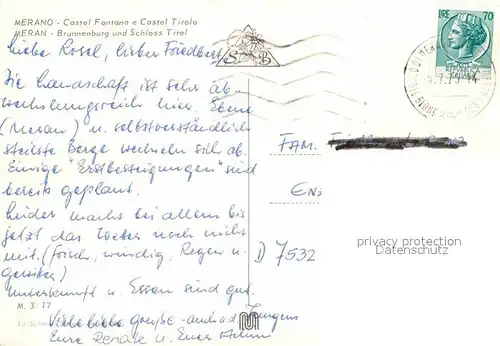 MERANO - Castel Fontana e Castel Tirolo
MERAN - Brunnenburg und Schloss Tirol
Liebe Rosel, lieber Friedbert
Die Landschaft ist sehr ab-
wechslungsreich hier. Ebene
(Meran) u. selbstverständlich
steilste Berge wechseln sich ab.
Einige "Erstbesteigungen" sind
bereits geplant.
Leider macht bei allem bis
jetzt das Wetter noch nicht
mit. (Frisch, windig, Regen u.
Gewitter)
Unterkunft u. Essen sind gut.
M. 3. 17
Viele liebe Grüße
Eure Renate u. Euer
S B
LIRE 70
FAM.
D 7532
privacy protection
Datenschutz